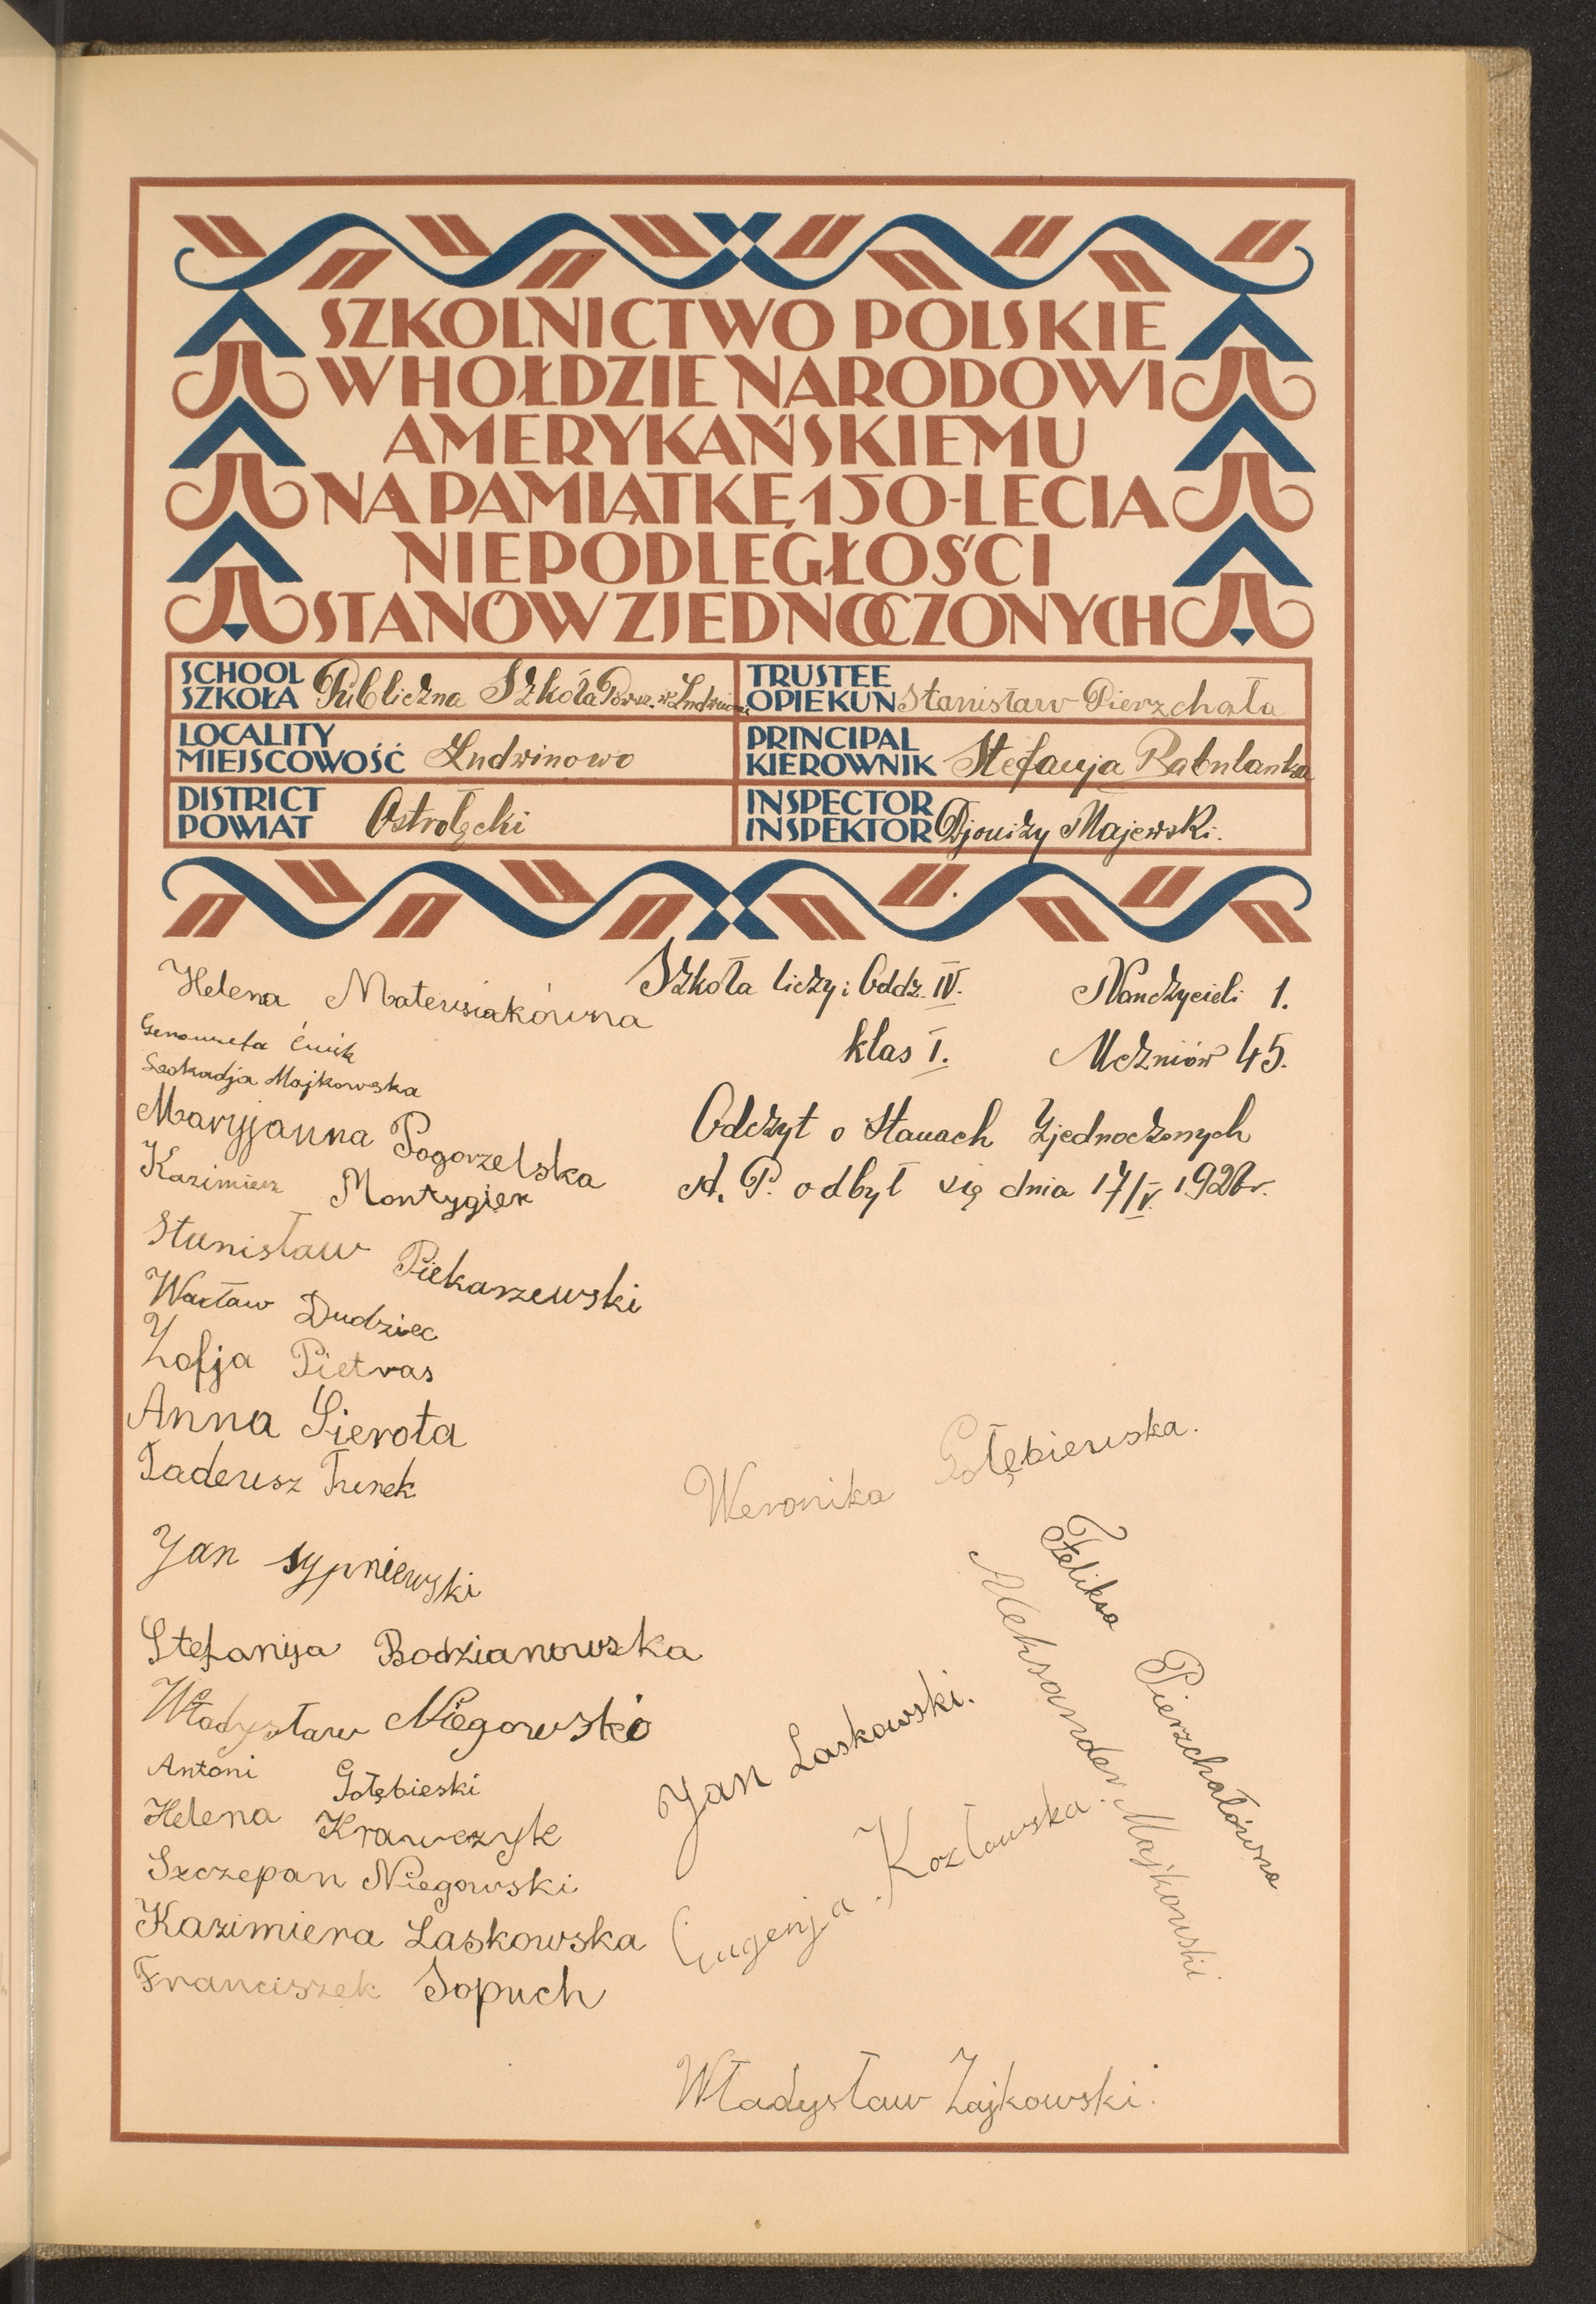 SZKOLNICTWO POLSKIE
W HOŁDZIE NARODOWI
AMERYKAŃSKIEMU
NA PAMIĄTKĘ 150-LECIA
NIEPODLEGŁOŚCI
STANÓW ZJEDNOCZONYCH
SCHOOL
SZKOŁA Publiczna Szkoła Pow. w Ludwinowie
TRUSTEE
OPIEKUN Stanisław Pierzchała
LOCALITY
MIEJSCOWOŚĆ Ludwinowo
PRINCIPAL
KIEROWNIK Stefanja
DISTRICT
POWIAT Ostrołęcki
INSPECTOR
INSPEKTOR Djonizy Majewski.
Szkoła liczy: Oddz. IV. Nauczycieli 1.
klas I. Uczniów 45.
Odczyt o Stanach Zjednoczonych
A. P. odbył się dnia 17/V. 1926 r.
Helena Mateusiakówna
Genowefa Ćwik
Leokadja Majkowska
Maryjanna Pogorzelska
Kazimierz Montygier
Stanisław Piekarzewski
Wacław Dudziec
Zofja Pietras
Anna Sierota
Tadeusz Turek
Jan Sypniewski
Stefanija Bodzianowska
Władysław Niegowski
Antoni Gołębieski
Helena Krawczyk
Szczepan Niegowski
Kazimiera Laskowska
Franciszek Sopuch
Weronika Gołębiewska.
Feliksa Pierzchałówna
Aleksander Majkowski
Jan Laskowski.
Eugenja Kozłowska.
Władysław Zajkowski.